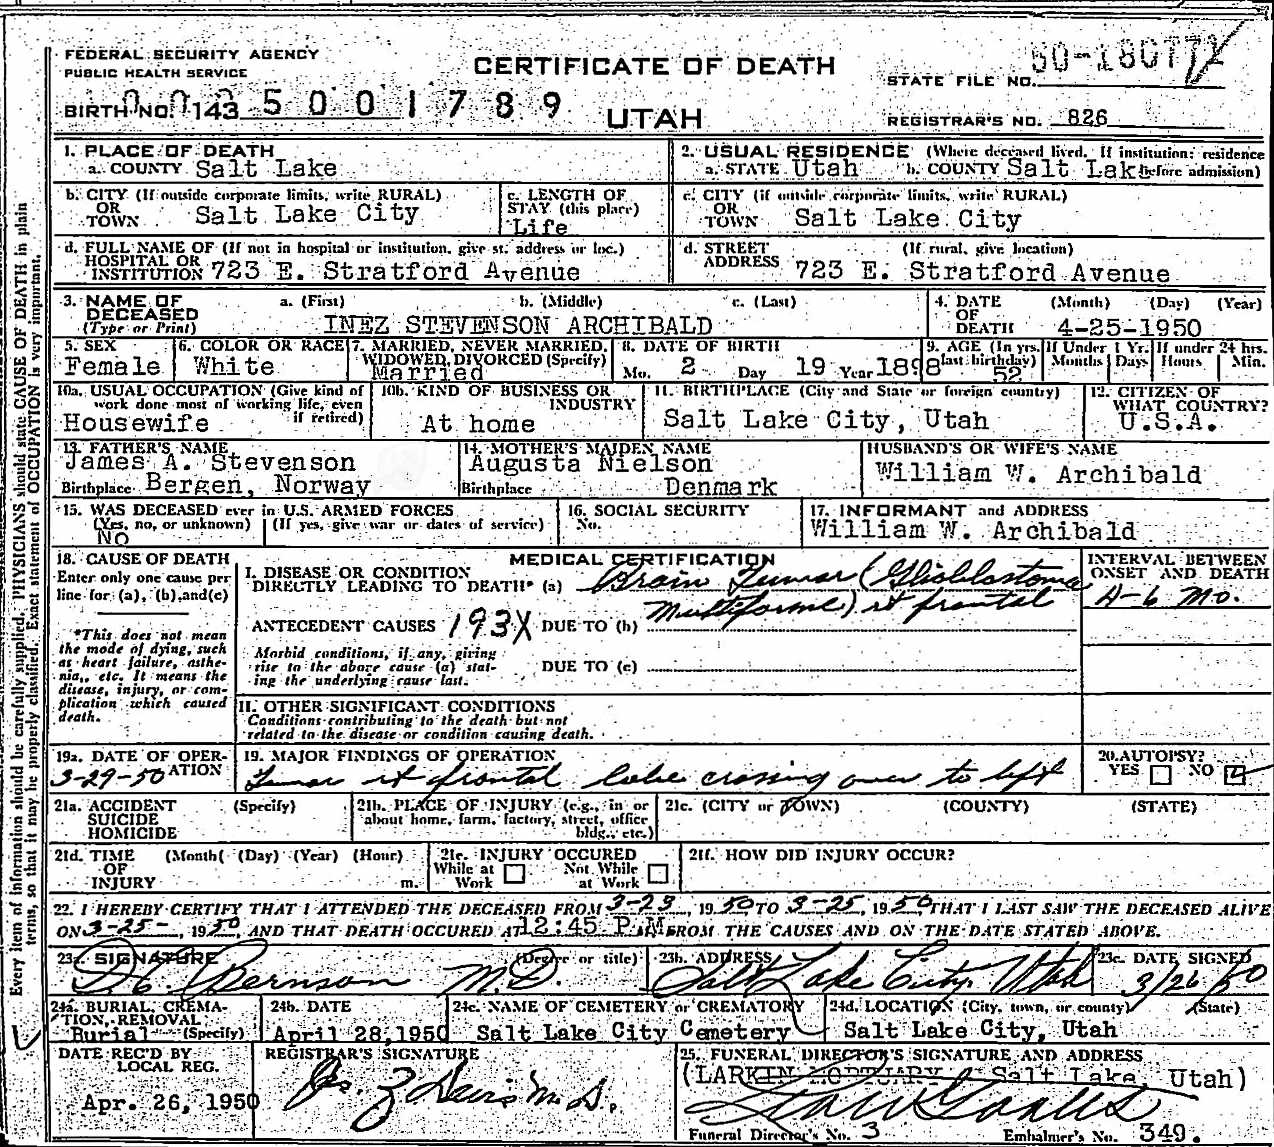 FEDERAL SECURITY AGENCY
PUBLIC HEALTH SERVICE
CERTIFICATE OF DEATH
STATE FILE NO. 50-180772
BIRTH NO. 143 5001789
UTAH
REGISTRAR'S NO. 826
1. PLACE OF DEATH
a. COUNTY Salt Lake
2. USUAL RESIDENCE (Where deceased lived. If institution: residence
a. STATE Utah b. COUNTY Salt Lake before admission)
b. CITY (If outside corporate limits, write RURAL)
OR
TOWN Salt Lake City
c. LENGTH OF
STAY (this place)
Life
c. CITY (if outside corporate limits, write RURAL)
OR
TOWN Salt Lake City
d. FULL NAME OF (If not in hospital or institution, give st. address or loc.)
HOSPITAL OR
INSTITUTION 723 E. Stratford Avenue
d. STREET (If rural, give location)
ADDRESS 723 E. Stratford Avenue
3. NAME OF a. (First) b. (Middle) c. (Last)
DECEASED
(Type or Print) INEZ STEVENSON ARCHIBALD
4. DATE (Month) (Day) (Year)
OF
DEATH 4-25-1950
5. SEX
Female
6. COLOR OR RACE
White
7. MARRIED, NEVER MARRIED,
WIDOWED, DIVORCED (Specify)
Married
8. DATE OF BIRTH
Mo. 2 Day 19 Year 1898
9. AGE (In yrs.
last birthday)
52
If Under 1 Yr.
Months Days
If under 24 hrs.
Hours Min.
10a. USUAL OCCUPATION (Give kind of
work done most of working life, even
if retired)
Housewife
10b. KIND OF BUSINESS OR
INDUSTRY
At home
11. BIRTHPLACE (City and State or foreign country)
Salt Lake City, Utah
12. CITIZEN OF
WHAT COUNTRY?
U.S.A.
13. FATHER'S NAME
James A. Stevenson
Birthplace Bergen, Norway
14. MOTHER'S MAIDEN NAME
Augusta Nielson
Birthplace Denmark
HUSBAND'S OR WIFE'S NAME
William W. Archibald
15. WAS DECEASED ever in U.S. ARMED FORCES
(Yes, no, or unknown) (If yes, give war or dates of service)
No
16. SOCIAL SECURITY
No.
17. INFORMANT and ADDRESS
William W. Archibald
18. CAUSE OF DEATH
Enter only one cause per
line for (a), (b), and (c)
*This does not mean
the mode of dying, such
as heart failure, asthe-
nia, etc. It means the
disease, injury, or com-
plication which caused
death.
MEDICAL CERTIFICATION
I. DISEASE OR CONDITION
DIRECTLY LEADING TO DEATH* (a) Brain Tumor (Glioblastoma
Multiforme) rt frontal
ANTECEDENT CAUSES 193X DUE TO (b)
Morbid conditions, if any, giving
rise to the above cause (a) stat-
ing the underlying cause last.
DUE TO (c)
II. OTHER SIGNIFICANT CONDITIONS
Conditions contributing to the death but not
related to the disease or condition causing death.
INTERVAL BETWEEN
ONSET AND DEATH
4-6 Mo.
19a. DATE OF OPER-
ATION
3-29-50
19. MAJOR FINDINGS OF OPERATION
Tumor rt frontal lobe crossing over to left
20. AUTOPSY?
YES NO
21a. ACCIDENT (Specify)
SUICIDE
HOMICIDE
21b. PLACE OF INJURY (e.g., in or
about home, farm, factory, street, office
bldg., etc.)
21c. (CITY or TOWN) (COUNTY) (STATE)
21d. TIME (Month( (Day) (Year) (Hour)
OF
INJURY m.
21e. INJURY OCCURED
While at Work Not While at Work
21f. HOW DID INJURY OCCUR?
22. I HEREBY CERTIFY THAT I ATTENDED THE DECEASED FROM 3-23, 1950 TO 3-25, 1950, THAT I LAST SAW THE DECEASED ALIVE
ON 3-25-, 1950 AND THAT DEATH OCCURED AT 12:45 P.M. FROM THE CAUSES AND ON THE DATE STATED ABOVE.
23a. SIGNATURE (Degree or title)
Bernson M.D.
23b. ADDRESS
Salt Lake City, Utah
23c. DATE SIGNED
3/26/50
24a. BURIAL, CREMA-
TION, REMOVAL
Burial (Specify)
24b. DATE
April 28, 1950
24c. NAME OF CEMETERY or CREMATORY
Salt Lake City Cemetery
24d. LOCATION (City, town, or county) (State)
Salt Lake City, Utah
DATE REC'D BY
LOCAL REG.
Apr. 26, 1950
REGISTRAR'S SIGNATURE
Davis M.D.
25. FUNERAL DIRECTOR'S SIGNATURE AND ADDRESS
(LARKIN MORTUARY Salt Lake, Utah)
Funeral Director's No. 3 Embalmer's No. 349.
Every item of information should be carefully supplied. PHYSICIANS should state CAUSE OF DEATH in plain
terms, so that it may be properly classified. Exact statement of OCCUPATION is very important.